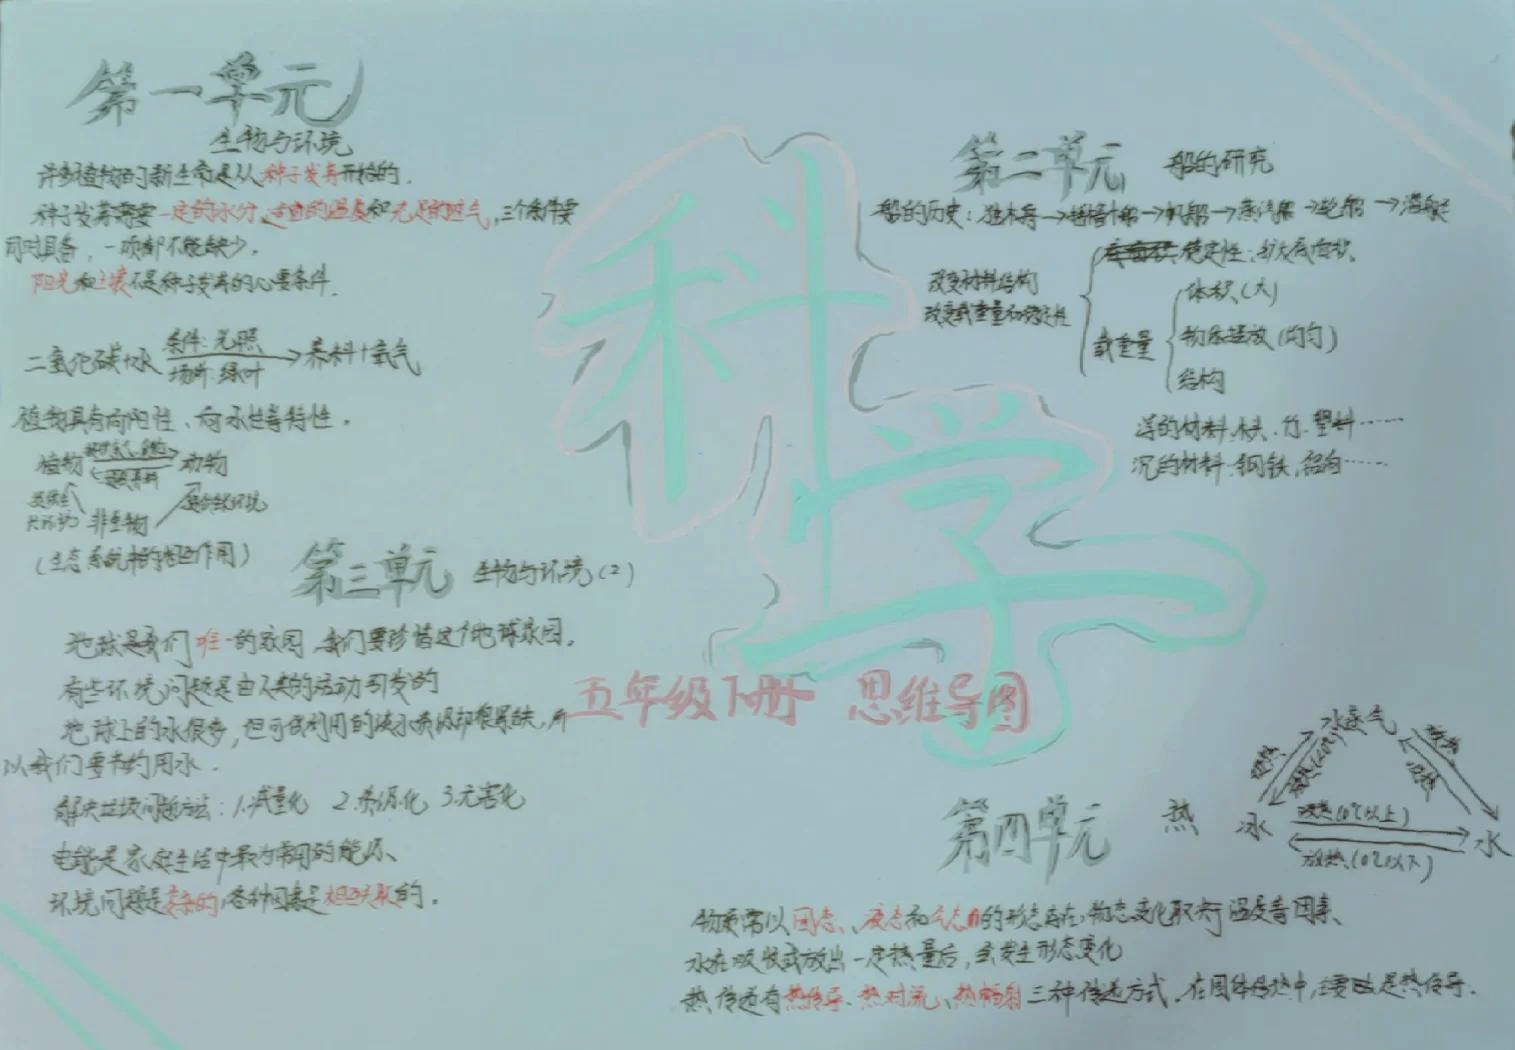 第一单元
生物与环境
许多植物的新生命是从种子发芽开始的.
种子发芽需要一定的水分、适宜的温度和充足的空气,三个条件要
同时具备,一项都不能缺少.
阳光和土壤不是种子发芽的必要条件.
二氧化碳+水 条件:光照 场所:绿叶 → 养料+氧气
植物具有向阳性、向水性等特性.
植物 动物
非生物
(生态系统中的相互作用)
第二单元 船的研究
船的历史:独木舟→摇橹木船→帆船→蒸汽船→轮船→潜艇
稳定性:扩大底面积.
改变材料结构
改变载重量和稳定性
载重量
体积(大)
物品摆放(均匀)
结构
浮的材料:木头、竹、塑料……
沉的材料:钢铁,铝的……
科学
五年级下册 思维导图
第三单元 生物与环境(2)
地球是我们唯一的家园,我们要珍惜这个地球家园.
有些环境问题是由人类的活动引发的
地球上的水很多,但可供利用的淡水资源却很紧缺,所
以我们要节约用水.
解决垃圾问题方法:1.减量化 2.资源化 3.无害化
电能是家庭生活中最为常用的能源、
环境问题是复杂的,各种因素是相互关联的.
第四单元 热
水蒸气
冰
水
吸热(0℃以上)
放热(0℃以下)
物质常以固态、液态和气态的形态存在,物态变化取决于温度等因素、
水在吸收或放出一定热量后,会发生形态变化
热传递有热传导、热对流、热辐射三种传递方式,在固体传热中,主要是热传导.